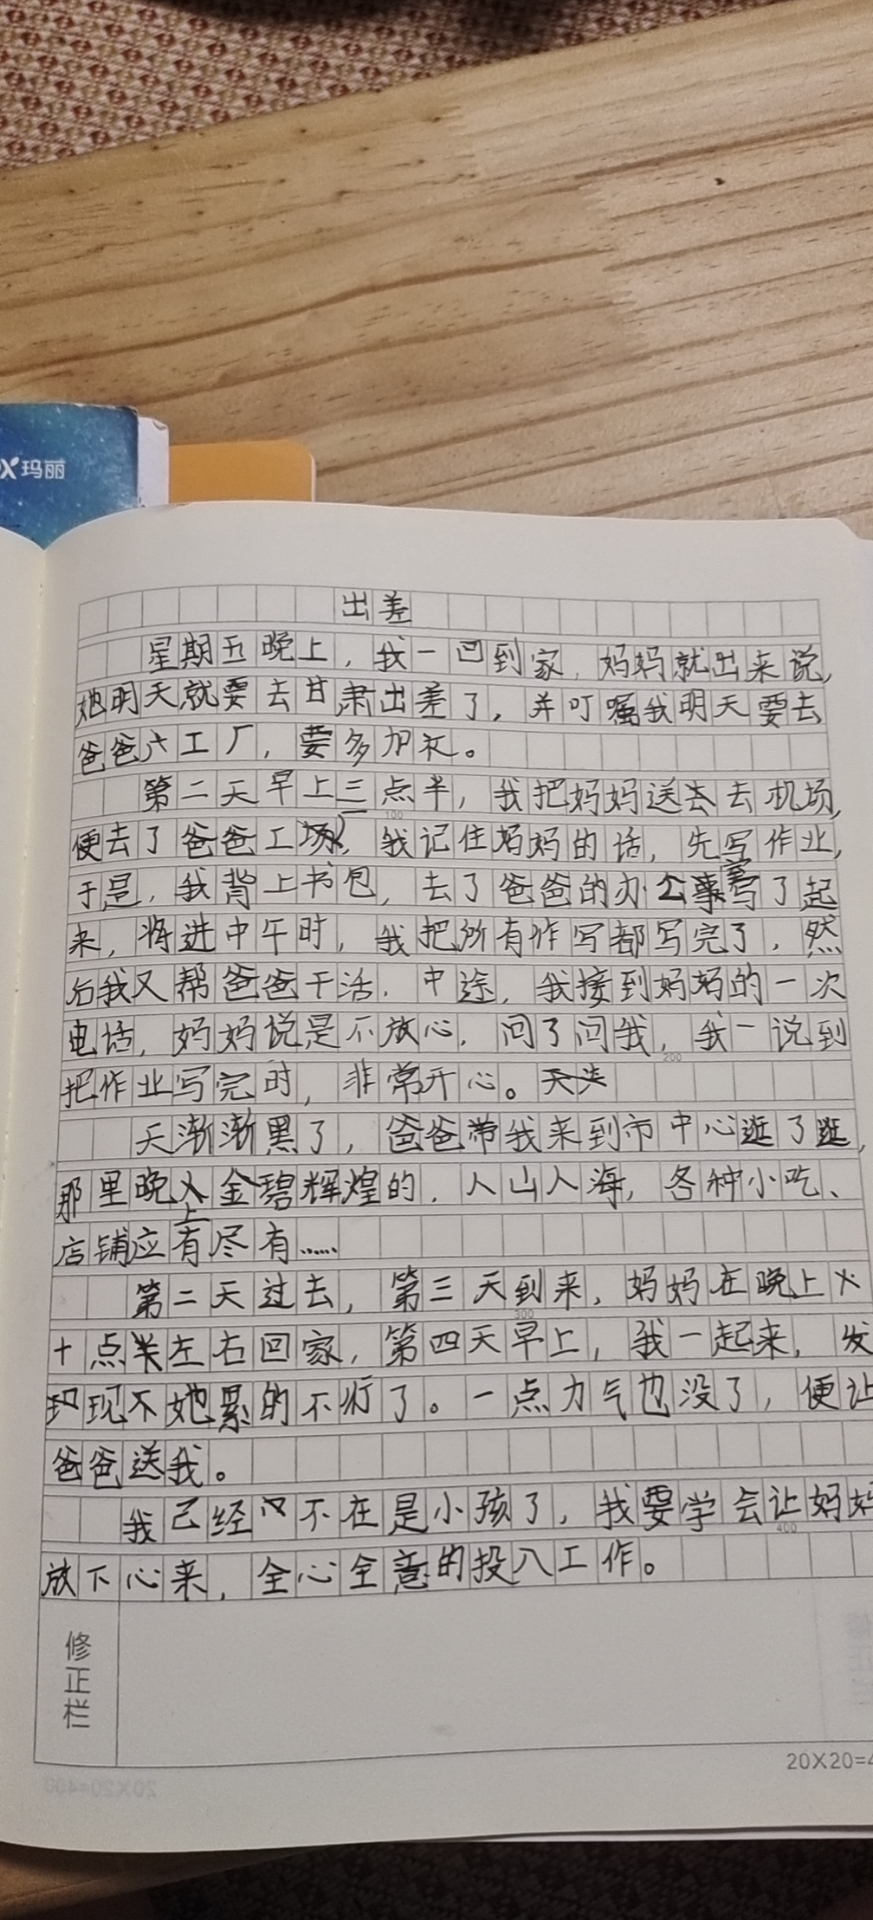 玛丽
出差
星期五晚上，我一回到家，妈妈就出来说，
她明天就要去甘肃出差了，并叮嘱我明天要去
爸爸工厂，要多加衣。
第二天早上三点半，我把妈妈送去去机场，
便去了爸爸工厂，我记住妈妈的话，先写作业，
于是，我背上书包，去了爸爸的办公室写了起
来，将进中午时，我把所有作写都写完了，然
后我又帮爸爸干活，中途，我接到妈妈的一次
电话，妈妈说是不放心，问了问我，我一说到
把作业写完时，非常开心。
天渐渐黑了，爸爸带我来到市中心逛了逛，
那里晚上金碧辉煌的，人山人海，各种小吃、
店铺应有尽有……
第二天过去，第三天到来，妈妈在晚上
十点半左右回家，第四天早上，我一起来，发
现不她累的不行了。一点力气也没了，便让
爸爸送我。
我已经不在是小孩了，我要学会让妈妈
放下心来，全心全意的投入工作。
修正栏
100
200
300
400
20×20=4